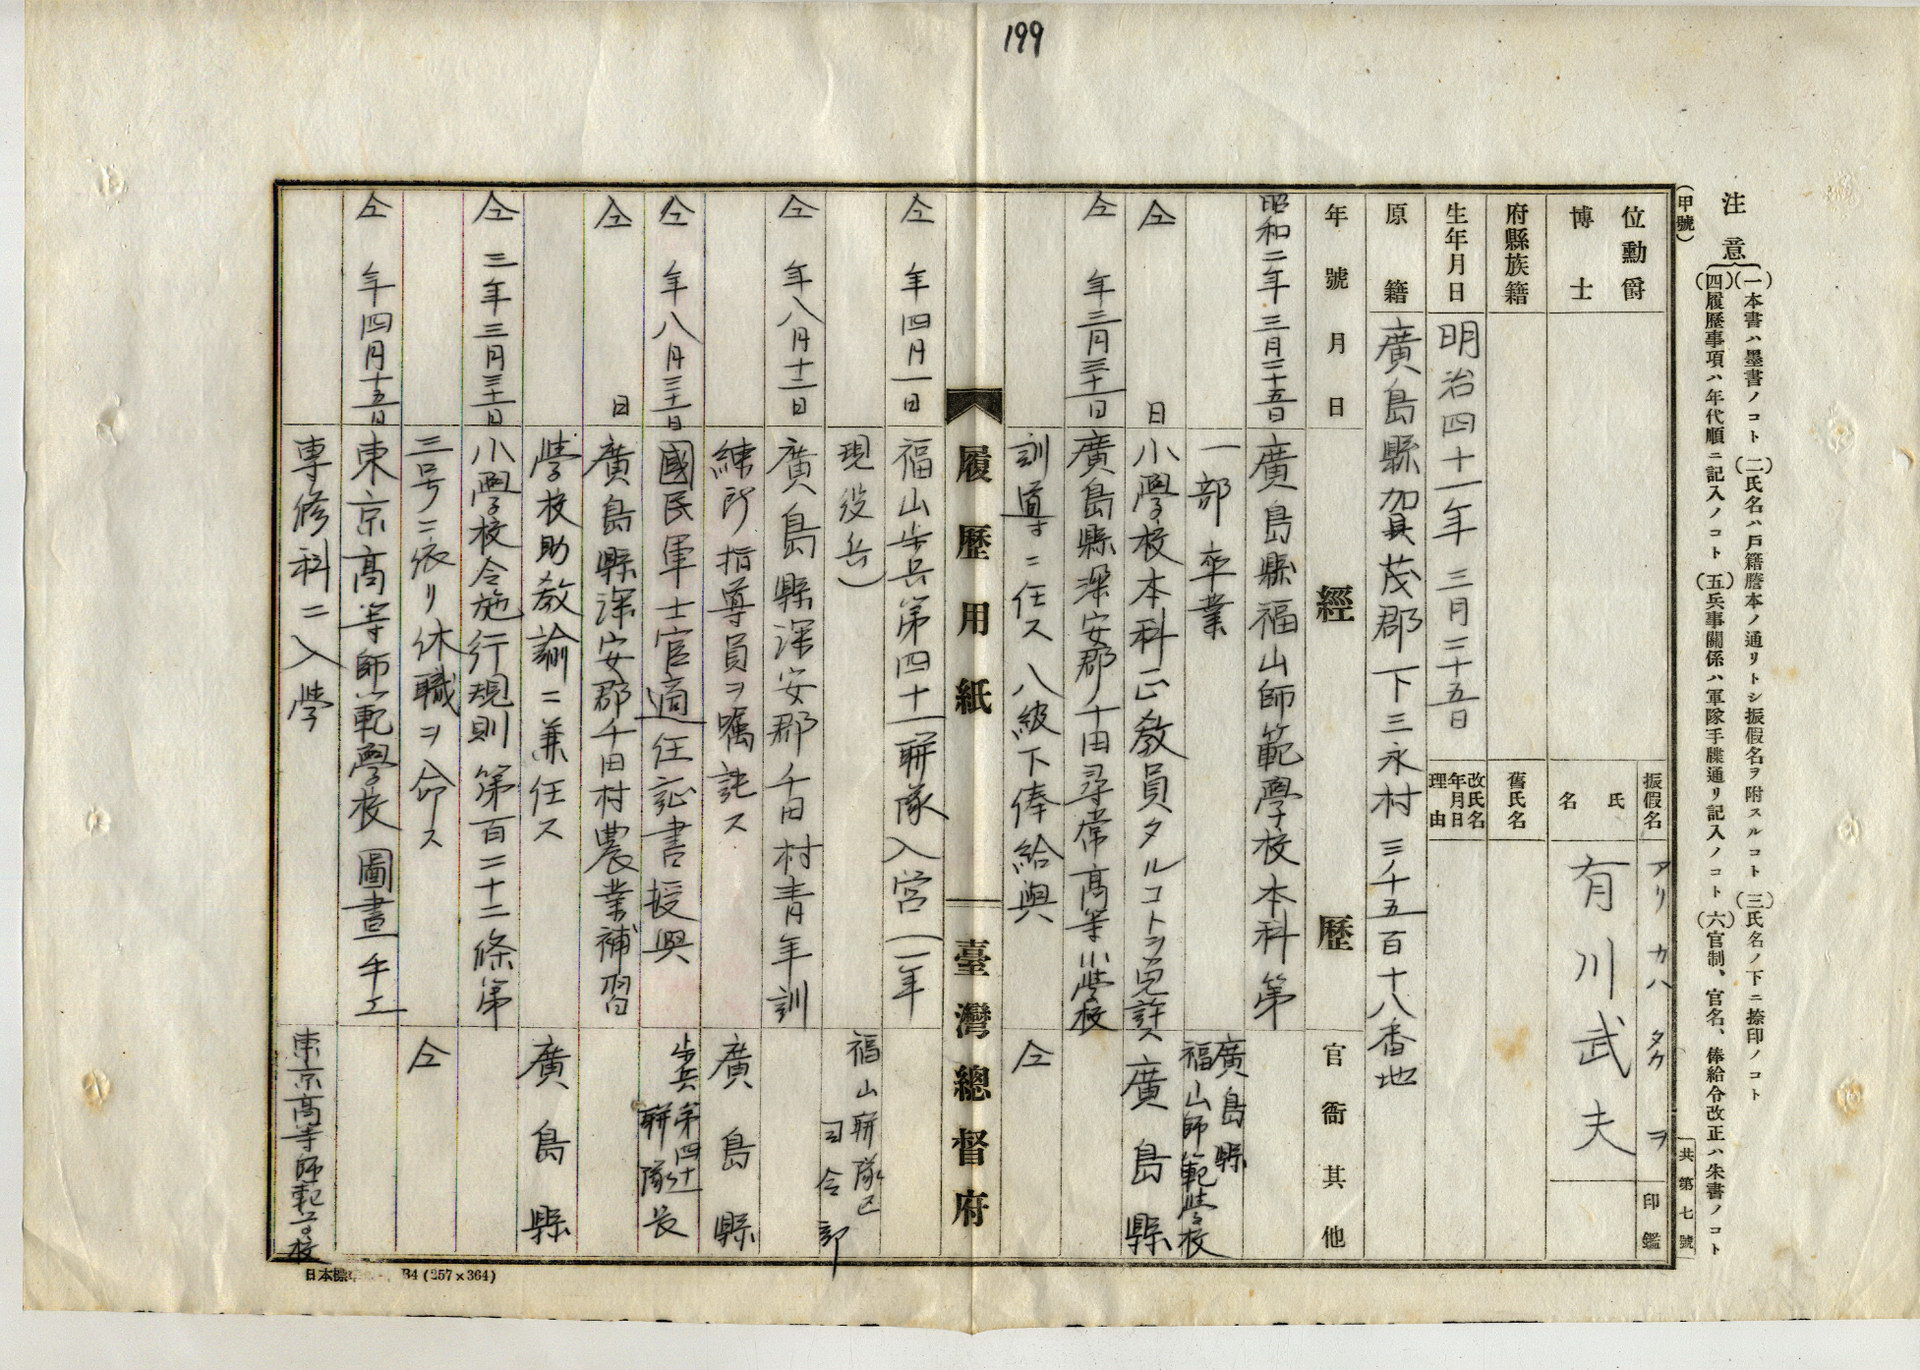 199
注意
(一)本書ハ墨書ノコト (二)氏名ハ戸籍謄本ノ通リトシ振假名ヲ附スルコト (三)氏名ノ下ニ捺印ノコト
(四)履歷事項ハ年代順ニ記入ノコト (五)兵事關係ハ軍隊手牒通リ記入ノコト (六)官制、官名、俸給令改正ハ朱書ノコト
(甲號)
共第七號
位勳爵
博士
振假名 アリカハ タケヲ
氏名 有川武夫
印鑑
府縣族籍
舊氏名
生年月日 明治四十一年三月二十五日
改氏名年月日理由
原籍 廣島縣加茂郡下三永村三ノ十五百十八番地
年號月日 經歷 官衙其他
昭和二年三月二十五日 廣島縣福山師範學校本科第 廣島縣
一部卒業 福山師範學校
仝 日 小學校本科正教員タルコトヲ免許ス 廣島縣
仝 年三月三十一日 廣島縣深安郡千田尋常高等小學校
訓導ニ任ス 八級下俸給與 仝
履歷用紙 臺灣總督府
仝 年四月一日 福山歩兵第四十一聯隊入営(一年
現役兵) 福山聯隊区司令部
仝 年八月十二日 廣島縣深安郡千田村青年訓
練所指導員ヲ嘱託ス 廣島縣
仝 年八月三十一日 國民軍士官適任証書授與 歩兵第四十一聯隊長
仝 日 廣島縣深安郡千田村農業補習
學校助教諭ニ兼任ス 廣島縣
仝 三年三月三十一日 小學校令施行規則第百二十二條第
三号ニ依リ休職ヲ命ス 仝
仝 年四月十五日 東京高等師範學校圖畫手工
専修科ニ入学 東京高等師範学校
B4 (257×364)